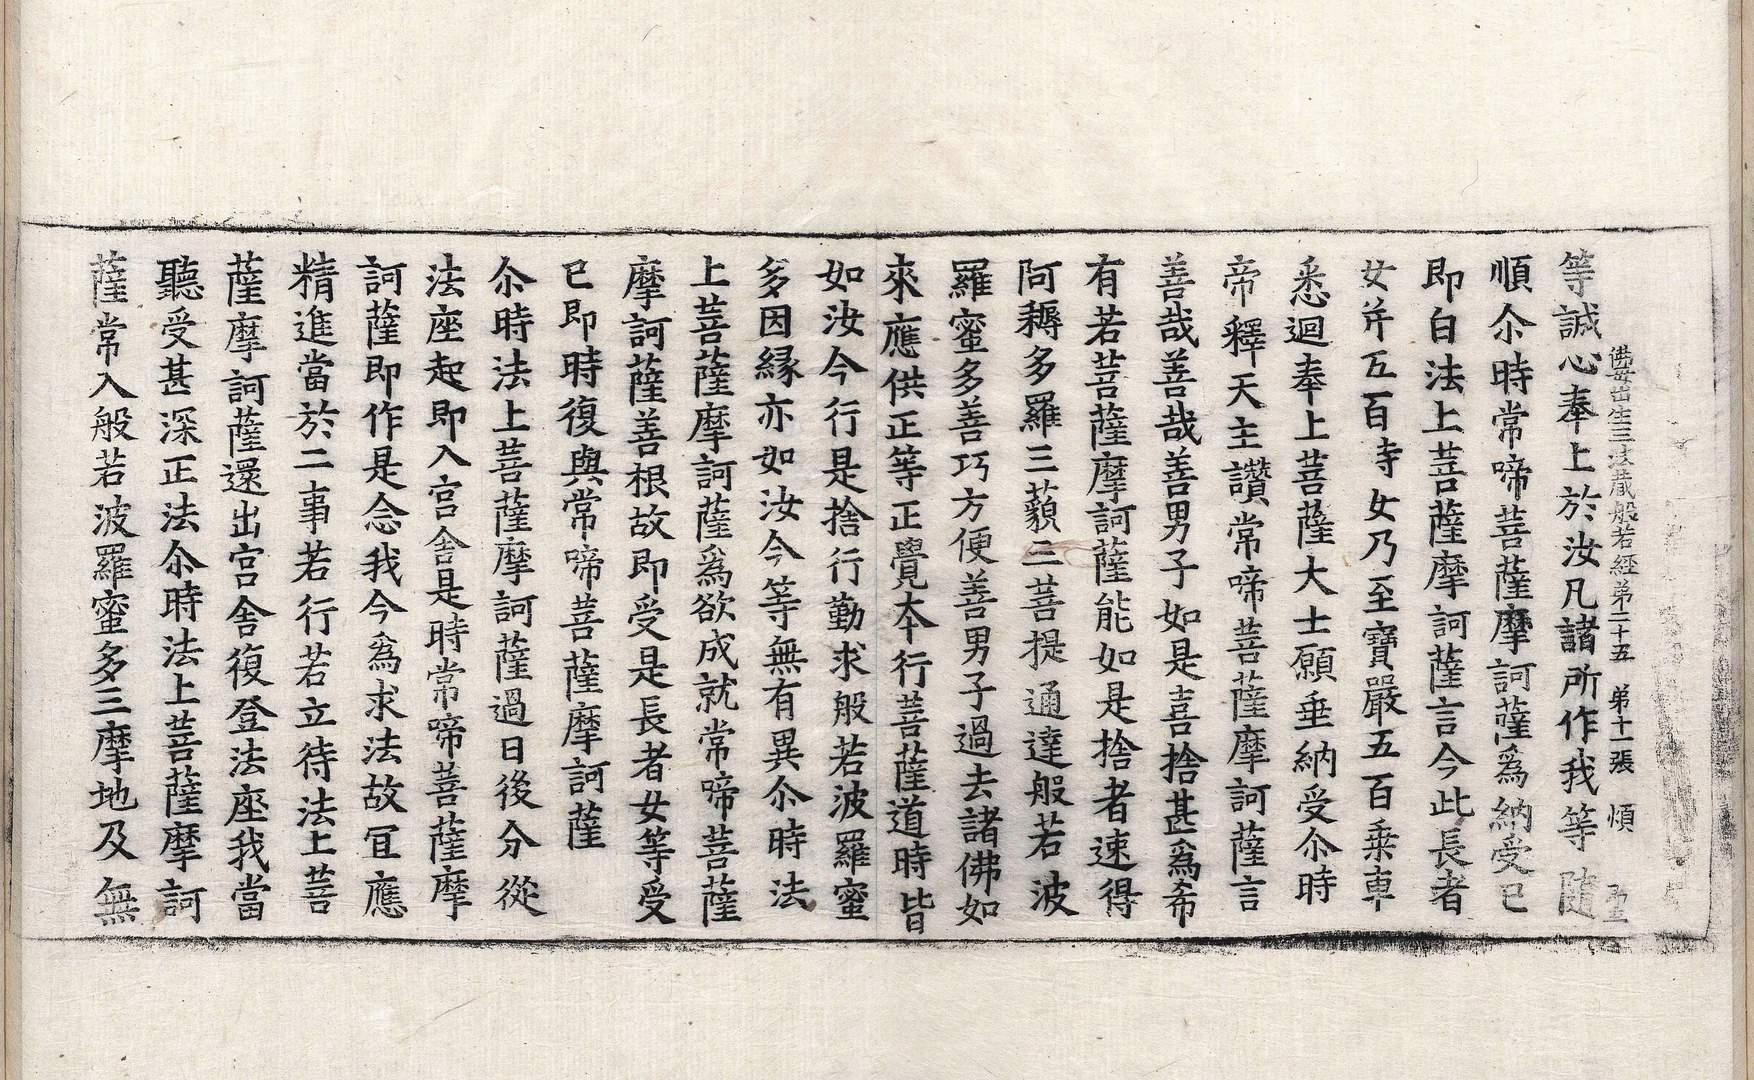 佛母出生三法藏般若經第二十五　第十一張　煩
等誠心奉上於汝凡諸所作我等隨
順尒時常啼菩薩摩訶薩爲納受已
即白法上菩薩摩訶薩言今此長者
女并五百侍女乃至寶嚴五百乗車
悉迴奉上菩薩大士願垂納受尒時
帝釋天主讚常啼菩薩摩訶薩言
善哉善哉善男子如是喜捨甚爲希
有若菩薩摩訶薩能如是捨者速得
阿耨多羅三藐三菩提通達般若波
羅蜜多善巧方便善男子過去諸佛如
來應供正等正覺夲行菩薩道時皆
如汝今行是捨行勤求般若波羅蜜
多因縁亦如汝今等無有異尒時法
上菩薩摩訶薩爲欲成就常啼菩薩
摩訶薩善根故即受是長者女等受
已即時復與常啼菩薩摩訶薩
尒時法上菩薩摩訶薩過日後分從
法座起即入宫舎是時常啼菩薩摩
訶薩即作是念我今爲求法故冝應
精進當於二事若行若立待法上菩
薩摩訶薩還出宫舎復登法座我當
聽受甚深正法尒時法上菩薩摩訶
薩常入般若波羅蜜多三摩地及無